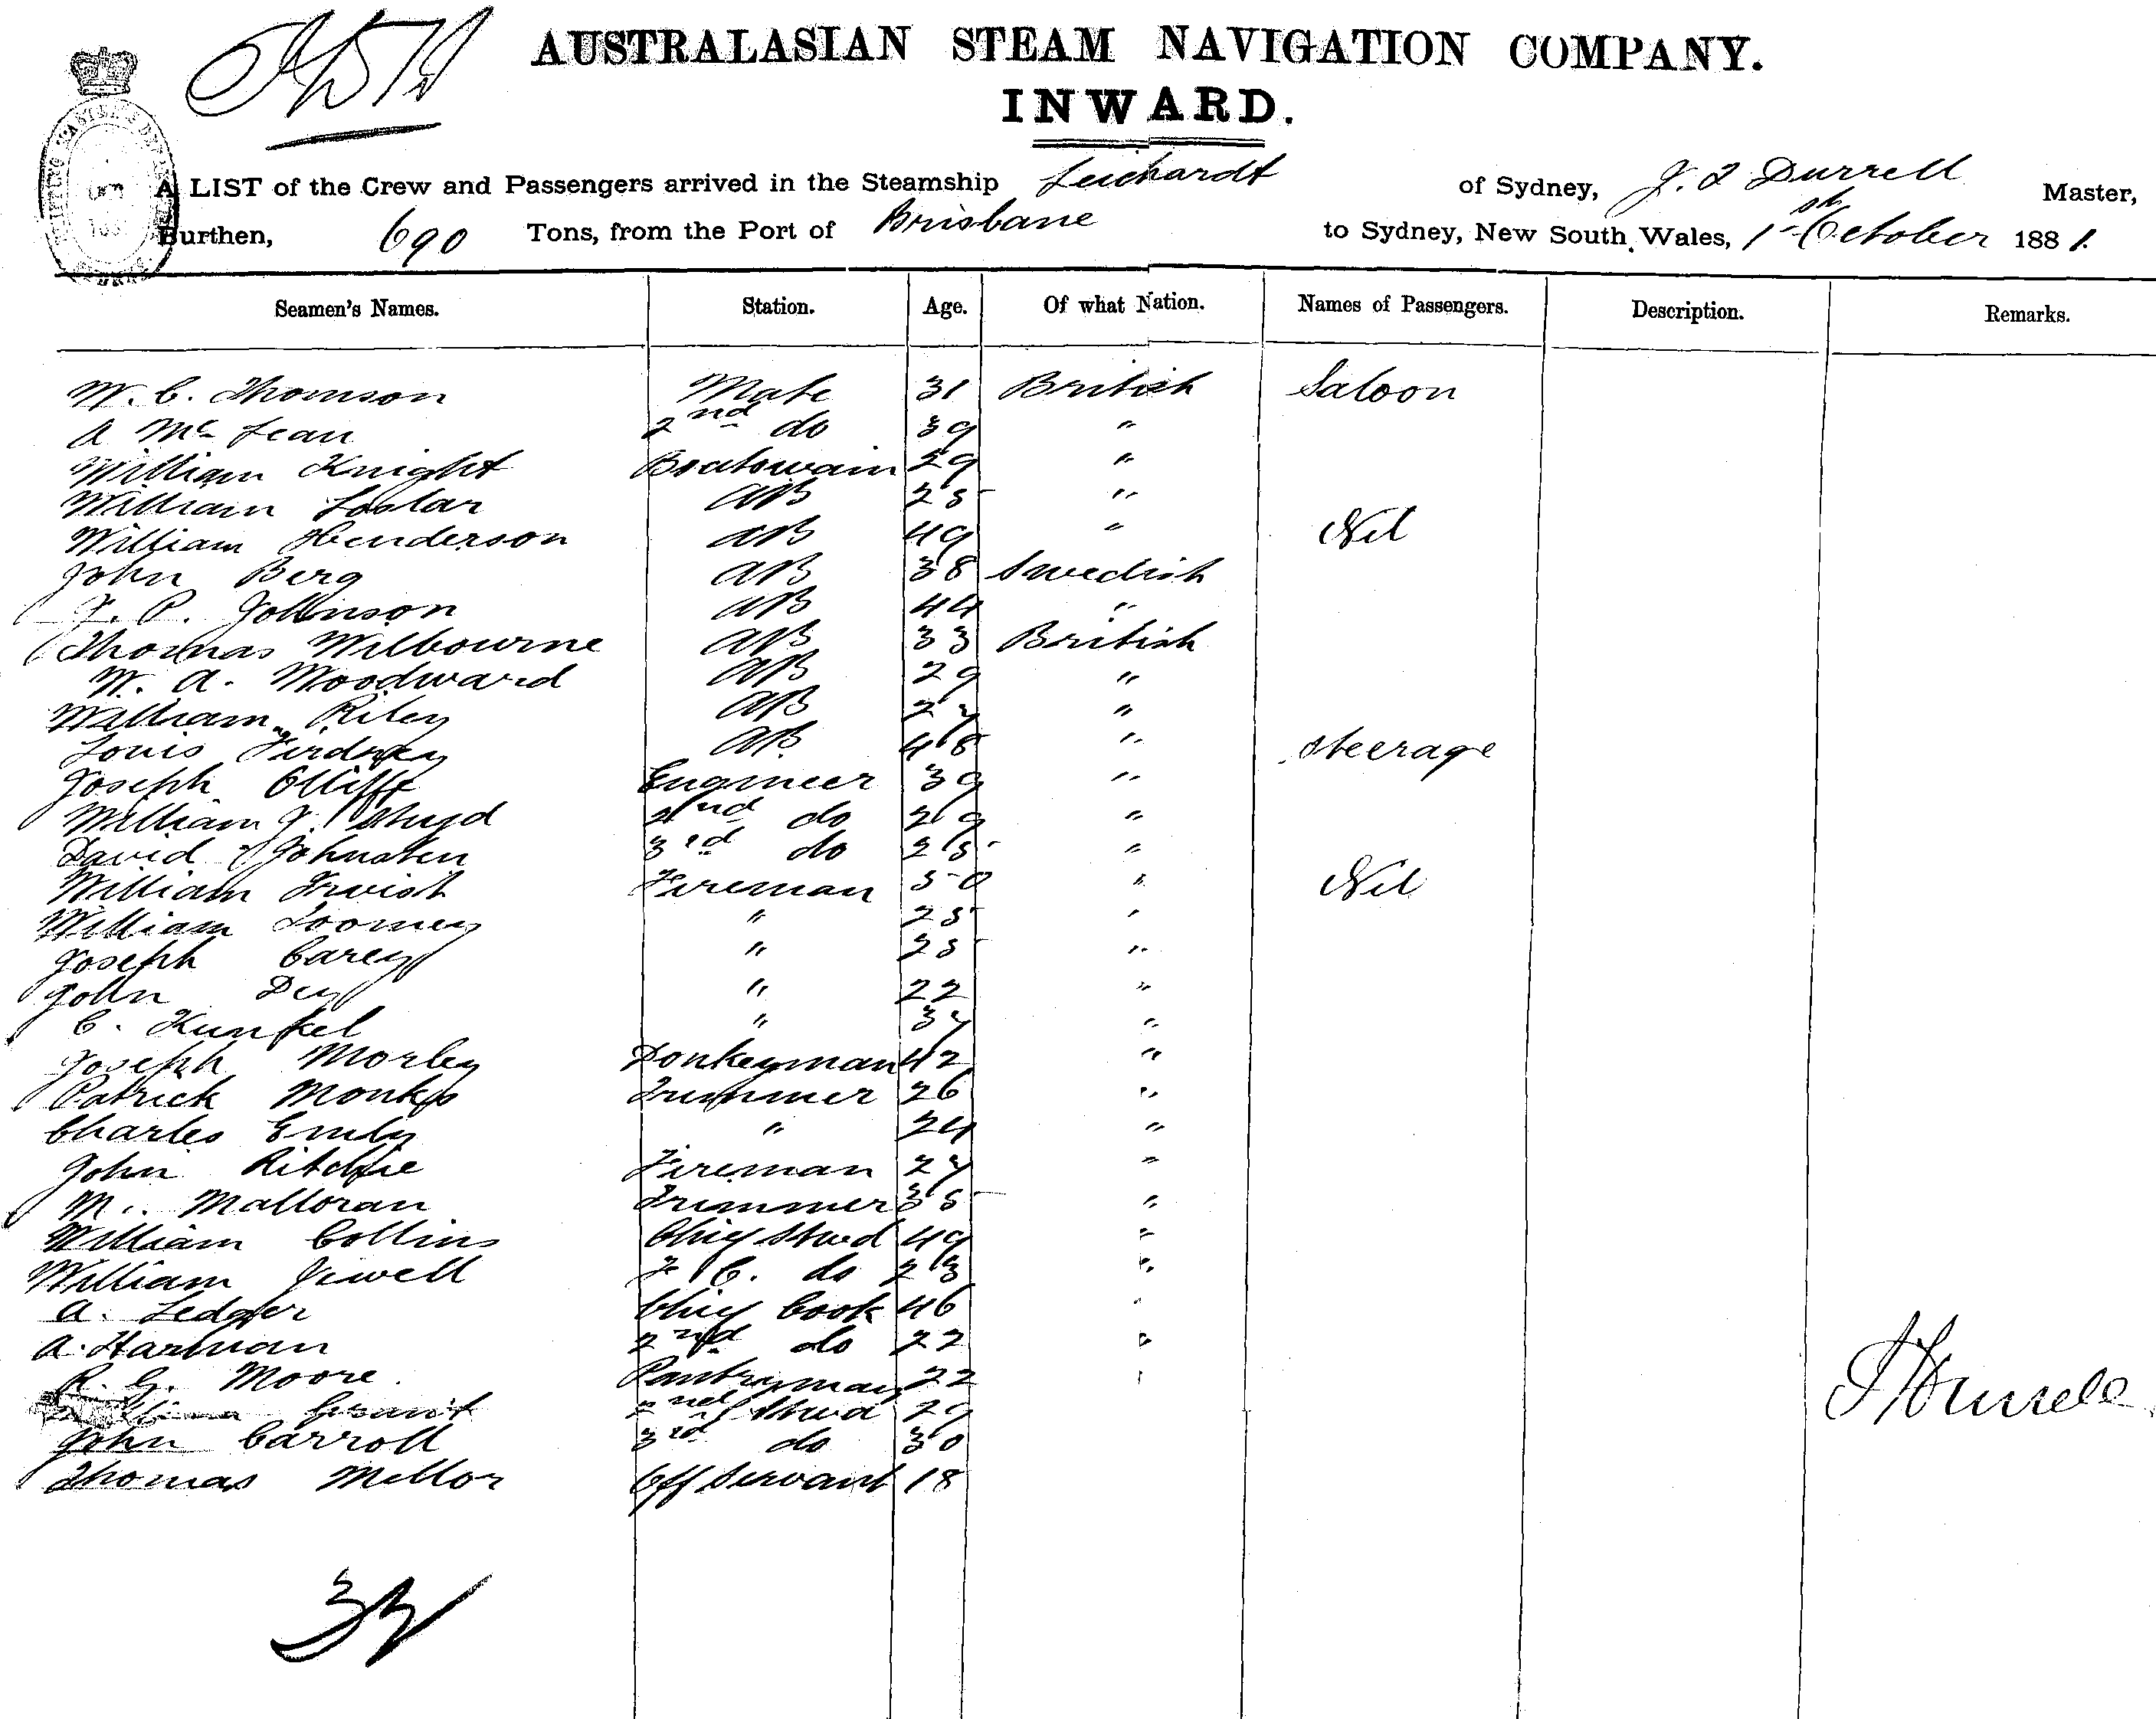 AUSTRALASIAN STEAM NAVIGATION COMPANY.
INWARD.
A LIST of the Crew and Passengers arrived in the Steamship Leichardt of Sydney, J. T Durrell Master,
Burthen, 690 Tons, from the Port of Brisbane to Sydney, New South Wales, 1st October 1881.
Seamen's Names. Station. Age. Of what Nation. Names of Passengers. Description. Remarks.
W. C. Thomson Mate 31 British Saloon
A McLean 2nd do 39 "
William Knight Boatswain 29 "
William AB 25 "
William Henderson AB 49 " Nil
John Berg AB 38 Swedish
J. P. Johnson AB 44 "
Thomas Wilbourne AB 33 British
W. A. Woodward AB 29 "
William Riley AB 27 "
Louis AB 48 " Steerage
Joseph Olliffe Engineer 39 "
William J. 2nd do 29 "
David Johnston 3rd do 25 "
William Fireman 50 " Nil
William Toomey " 25 "
Joseph Carey " 25 "
John Dey " 22 "
C. Kunkel " 37 "
Joseph Morley Donkeyman 42 "
Patrick Monks Trimmer 26 "
Charles Emily " 24 "
John Ritchie Fireman 27 "
M. Malloran Trimmer 35 "
William Collins Chief Stwd 49 "
William Jewell F C. do 23 "
A. Ledger Chief Cook 46 "
A. Hartman 2nd do 22 "
R. G. Moore Pantryman 22 "
Grant 2nd Stwd 29
John Carroll 3rd do 30
Thomas Mellor Off Servant 18
JTDurrell
32